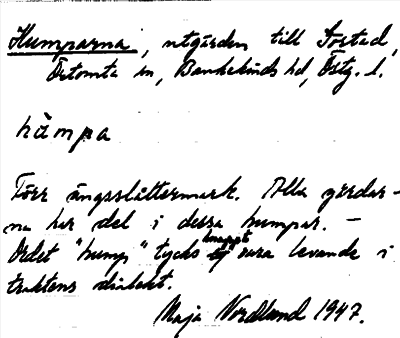 Humparna, utgården till Sörstad,
Örtomta sn, Bankekinds hd, Östg. l.
håmpa
Torr ängsslåttermark. Alla gårdar-
na har del i dessa humpar. —
Ordet "hump" tycks knappt vara levande i
traktens dialekt.
Maja Nordlund 1947.